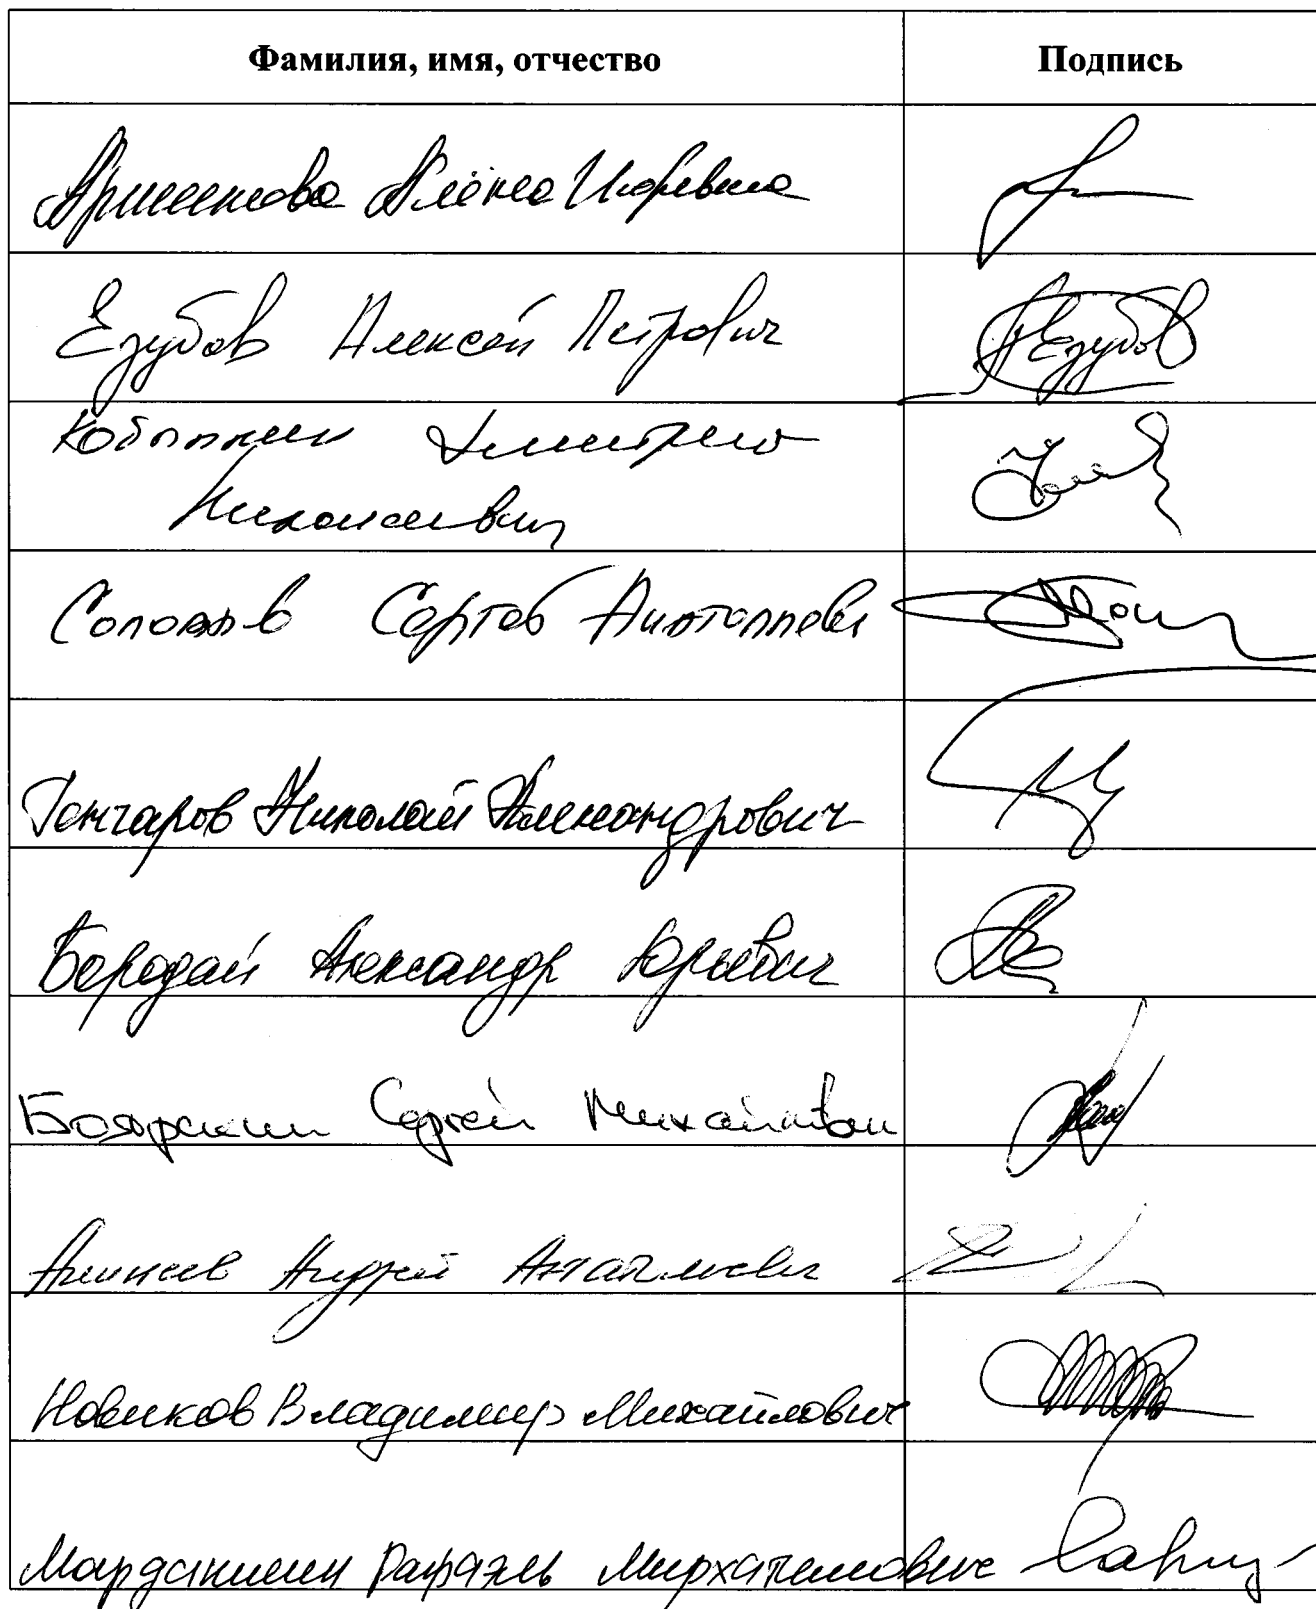 Фамилия, имя, отчество Подпись
Аршинова Алёна Игоревна
Езубов Алексей Петрович Езубов
Кобылкин Дмитрий
Николаевич
Соловьев Сергей Анатольевич
Гончаров Николай Александрович
Бородай Александр Юрьевич
Боярский Сергей Михайлович
Андрей Анатольевич
Новиков Владимир Михайлович
Марданшин Рафаэль Мирхатимович